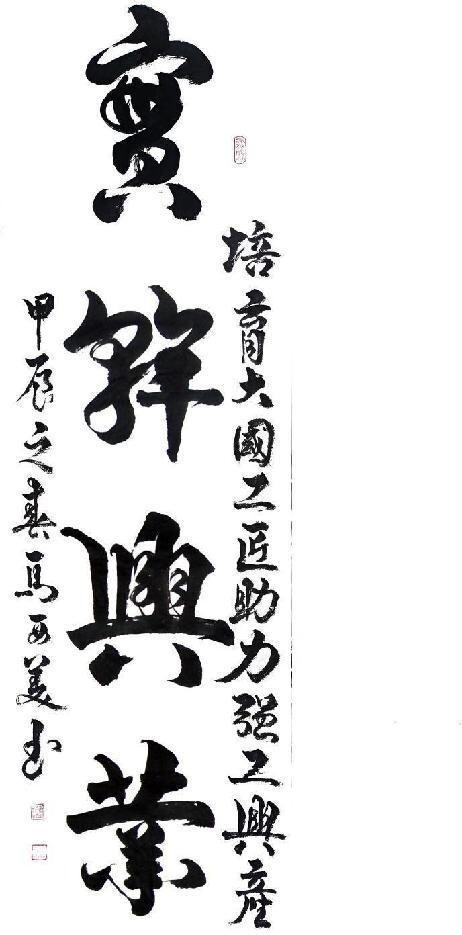 培育大國工匠助力强工興產
實幹興業
甲辰之春馬西美书